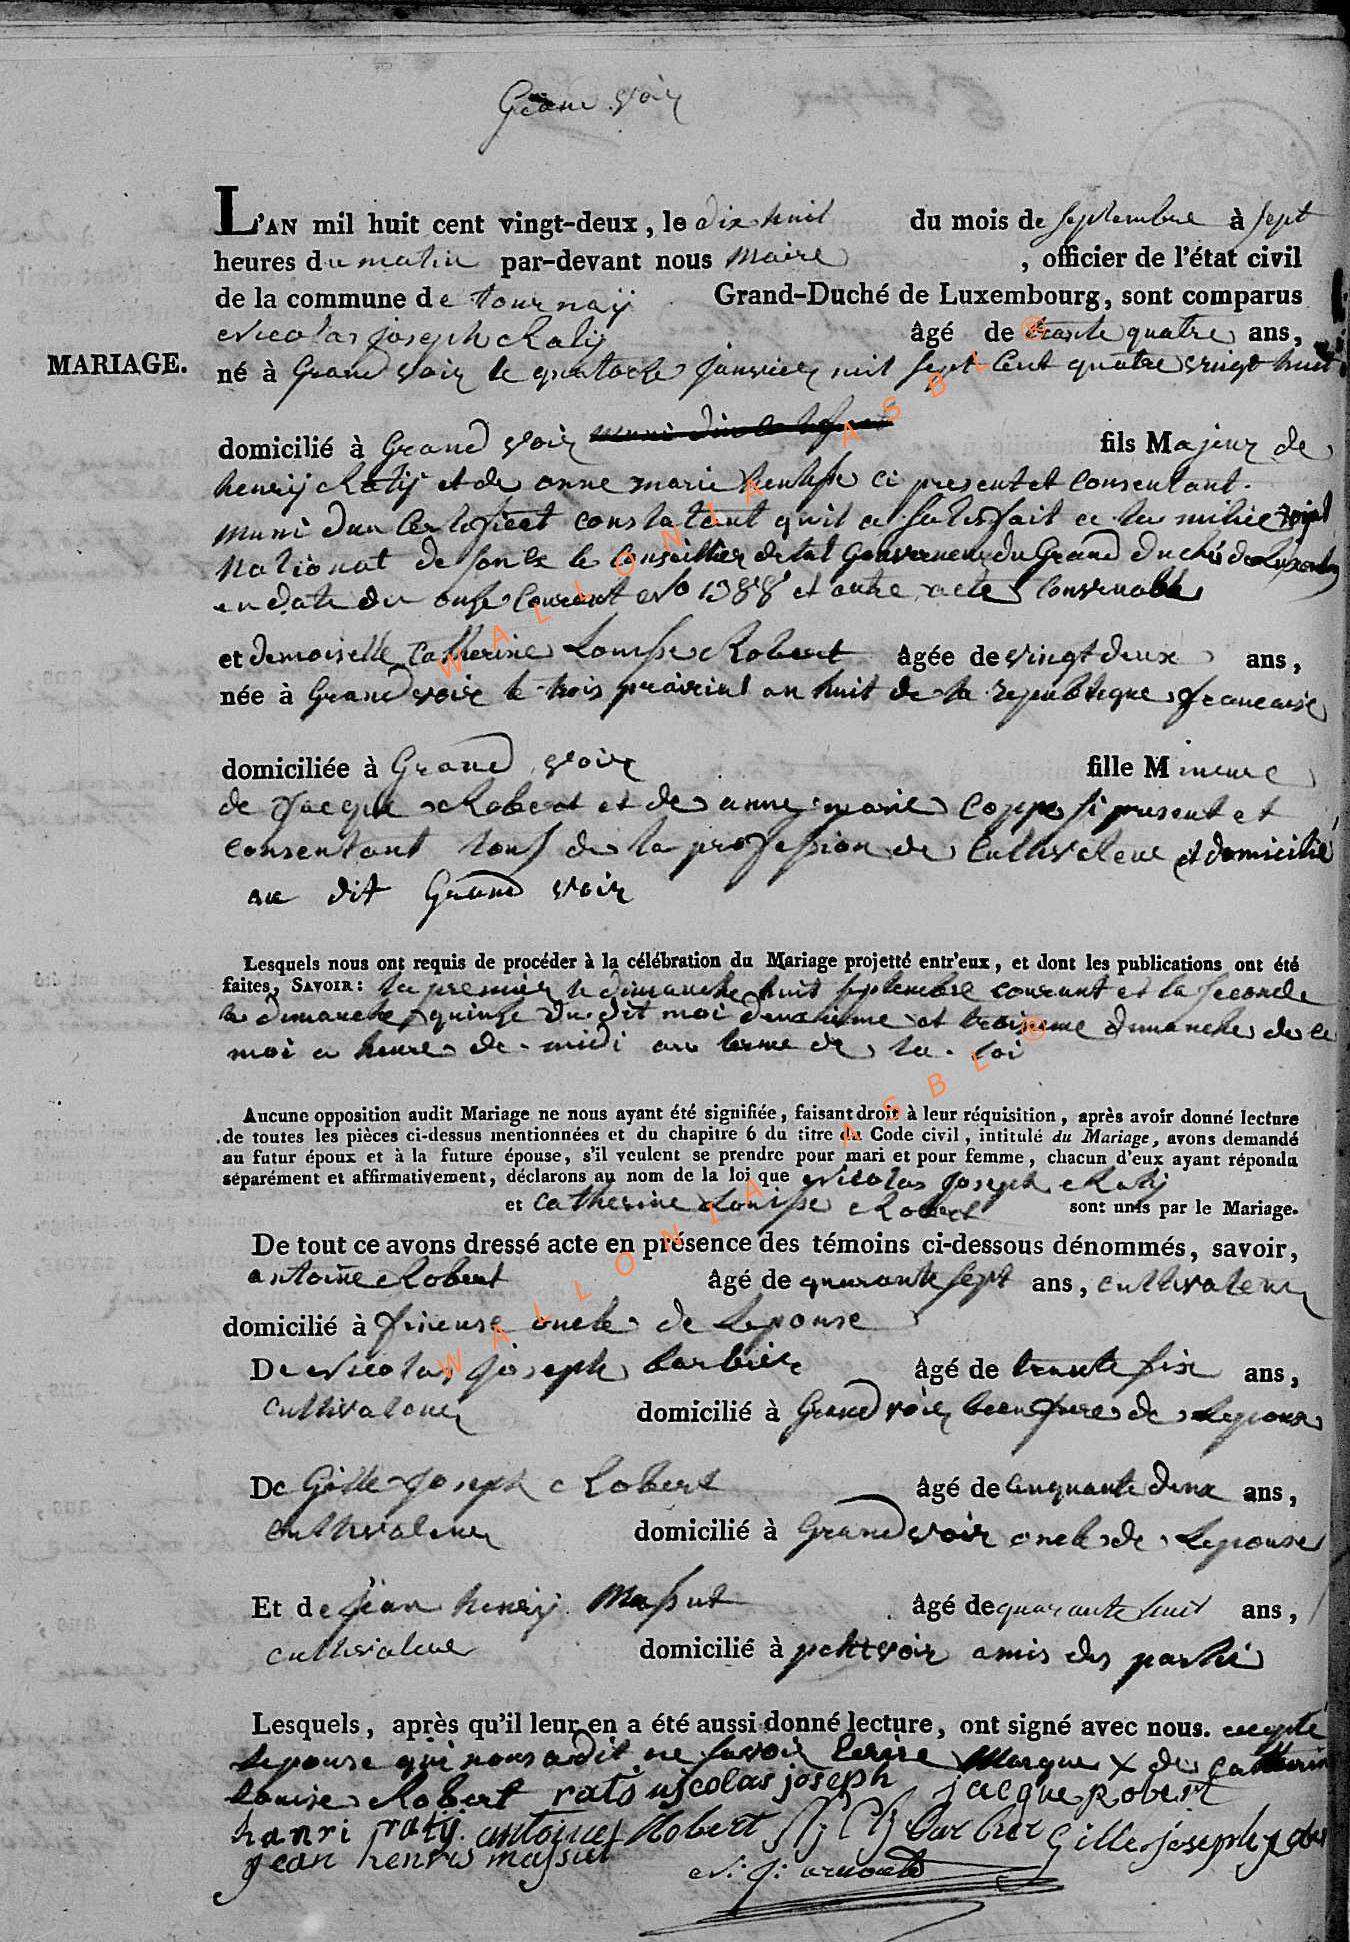 Grand voir
L'AN mil huit cent vingt-deux, le dix huit du mois de septembre à sept
heures du matin par-devant nous maire , officier de l'état civil
de la commune de tournaÿ Grand-Duché de Luxembourg, sont comparus
Nicolas joseph Ratÿ âgé de trante quatre ans,
MARIAGE.
né à Grand voir le quatorze janvier mil sept cent quatre vingt huit
domicilié à Grand voir fils Majeur de
henrÿ Ratÿ et de anne marie ci present et consentant.
muni dun certificat constatant quil a satisfait a la milice
National de le Conseillier detat Gouverneur du Grand duché de Luxembourg
en date du onze courant No 1388 et autre acte convenable
et demoiselle Catherine Louise Robert âgée de vingt deux ans,
née à Grand voir le trois prairial an huit de la republique francaise
domiciliée à Grand voir fille Mineure
de Jacque Robert et de anne marie Coppe si present et
consentant tous de la profession de Cultivateur et domicilié
au dit Grand voir
Lesquels nous ont requis de procéder à la célébration du Mariage projetté entr'eux, et dont les publications ont été
faites, SAVOIR: la premier le dimanche huit septembre courant et la seconde
le dimanche quinze du dit moi deuxieme et troisieme dimanche de ce
moi a heure de midi au terme de la loi
Aucune opposition audit Mariage ne nous ayant été signifiée, faisant droit à leur réquisition, après avoir donné lecture
de toutes les pièces ci-dessus mentionnées et du chapitre 6 du titre du Code civil, intitulé du Mariage, avons demandé
au futur époux et à la future épouse, s'il veulent se prendre pour mari et pour femme, chacun d'eux ayant répondu
séparément et affirmativement, déclarons au nom de la loi que Nicolas joseph Ratÿ
et catherine Louise Robert sont unis par le Mariage.
De tout ce avons dressé acte en présence des témoins ci-dessous dénommés, savoir,
antoine Robert âgé de quarante sept ans, cultivateur
domicilié à oncle de Lepouse
De Nicolas joseph barbier âgé de trente six ans,
cultivateur domicilié à Grand voir beau frere de Lepouse
De Gille joseph Robert âgé de cinquante deux ans,
cultivateur domicilié à Grand voir oncle de Lepouse
Et de jean henrÿ Massut âgé de quarante huit ans,
cultivateur domicilié à petit voir amis des partie
Lesquels, après qu'il leur en a été aussi donné lecture, ont signé avec nous. excepté
Lepouse qui nous a dit ne savoir Ecrire Marque X de catherine
Louise Robert ratÿ nicolas joseph jacque Robert
hanri ratÿ antoine Robert N; J; barbier Gille joseph Robert
jean henris massut N: j: arnould
WALLONIA ASBL ®
WALLONIA ASBL ®